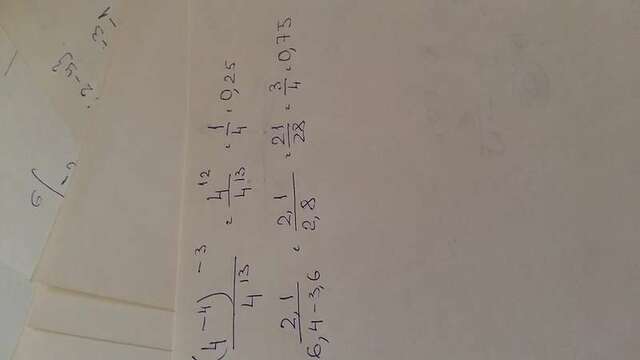 (4^-4)^-3 / 4^13 = 4^12 / 4^13 = 1/4 = 0,25
2,1 / 6,4-3,6 = 2,1 / 2,8 = 21/28 = 3/4 = 0,75